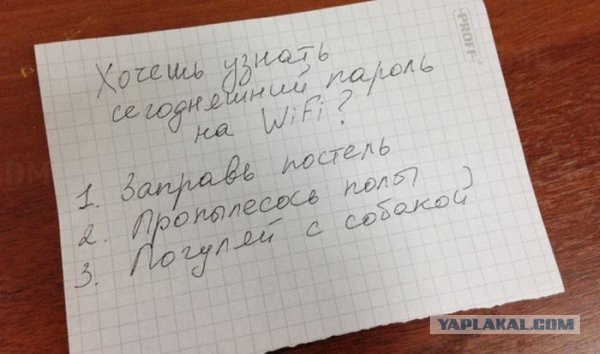 PROFF
Хочешь узнать
сегодняшний пароль
на WiFi?
1. Заправь постель
2. Пропылесось полы
3. Погуляй с собакой
YAPLAKAL.COM